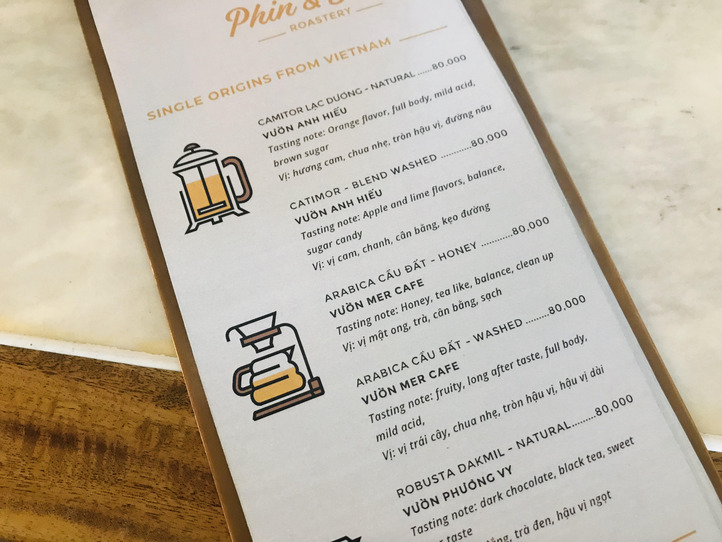 Phin &
ROASTERY
SINGLE ORIGINS FROM VIETNAM
CAMITOR LẠC DƯƠNG - NATURAL ......80.000
VƯỜN ANH HIẾU
Tasting note: Orange flavor, full body, mild acid,
brown sugar
Vị: hương cam, chua nhẹ, tròn hậu vị, đường nâu
CATIMOR - BLEND WASHED ...........80,000
VƯỜN ANH HIẾU
Tasting note: Apple and lime flavors, balance,
sugar candy
Vị: vị cam, chanh, cân bằng, kẹo đường
ARABICA CẦU ĐẤT - HONEY ...........80,000
VƯỜN MER CAFE
Tasting note: Honey, tea like, balance, clean up
Vị: vị mật ong, trà, cân bằng, sạch
ARABICA CẦU ĐẤT - WASHED ........80,000
VƯỜN MER CAFE
Tasting note: fruity, long after taste, full body,
mild acid,
Vị: vị trái cây, chua nhẹ, tròn hậu vị, hậu vị dài
ROBUSTA DAKMIL - NATURAL........80,000
VƯỜN PHƯƠNG VY
Tasting note: dark chocolate, black tea, sweet
taste
trà đen, hậu vị ngọt